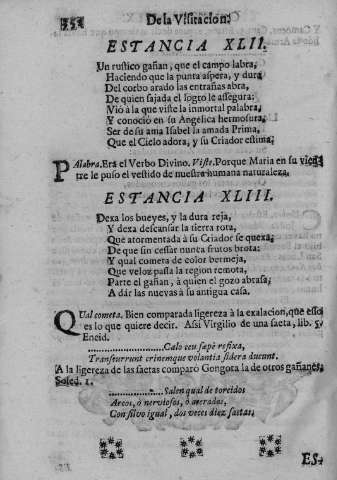 De la Visitacion.
ESTANCIA XLII.
Un rustico gañan, que el campo labra,
Haciendo que la punta aspera, y dura
Del corbo arado las entrañas abra,
De quien fajada el logro le assegura:
Viò à la que viste la inmortal palabra,
Y conociò en su Angelica hermosura,
Ser de su ama Isabel la amada Prima,
Que el Cielo adora, y su Criador estima.
PAlabra. Era el Verbo Divino. Viste. Porque Maria en su vien-
tre le puso el vestido de nuestra humana naturaleza.
ESTANCIA XLIII.
Dexa los bueyes, y la dura reja,
Y dexa descansar la tierra rota,
Que atormentada à su Criador se quexa,
De que sin cessar nunca frutos brota:
Y qual cometa de color bermeja,
Que veloz passa la region remota,
Parte el gañan, à quien el gozo abrasa,
A dár las nuevas à su antigua casa.
QUal cometa. Bien comparada ligereza à la exalacion, que esso
es lo que quiere decir. Assi Virgilio de una saeta, lib. 5.
Eneid.
Cælo ceu sæpè refixa,
Transcurrunt crinemque volantia sidera ducunt.
A la ligereza de las saetas comparò Gongora la de otros gañanes,
Soled. 1.
Salen qual de torcidos
Arcos, ò nerviosos, ò acerados,
Con silvo igual, dos veces diez saetas.
ES-